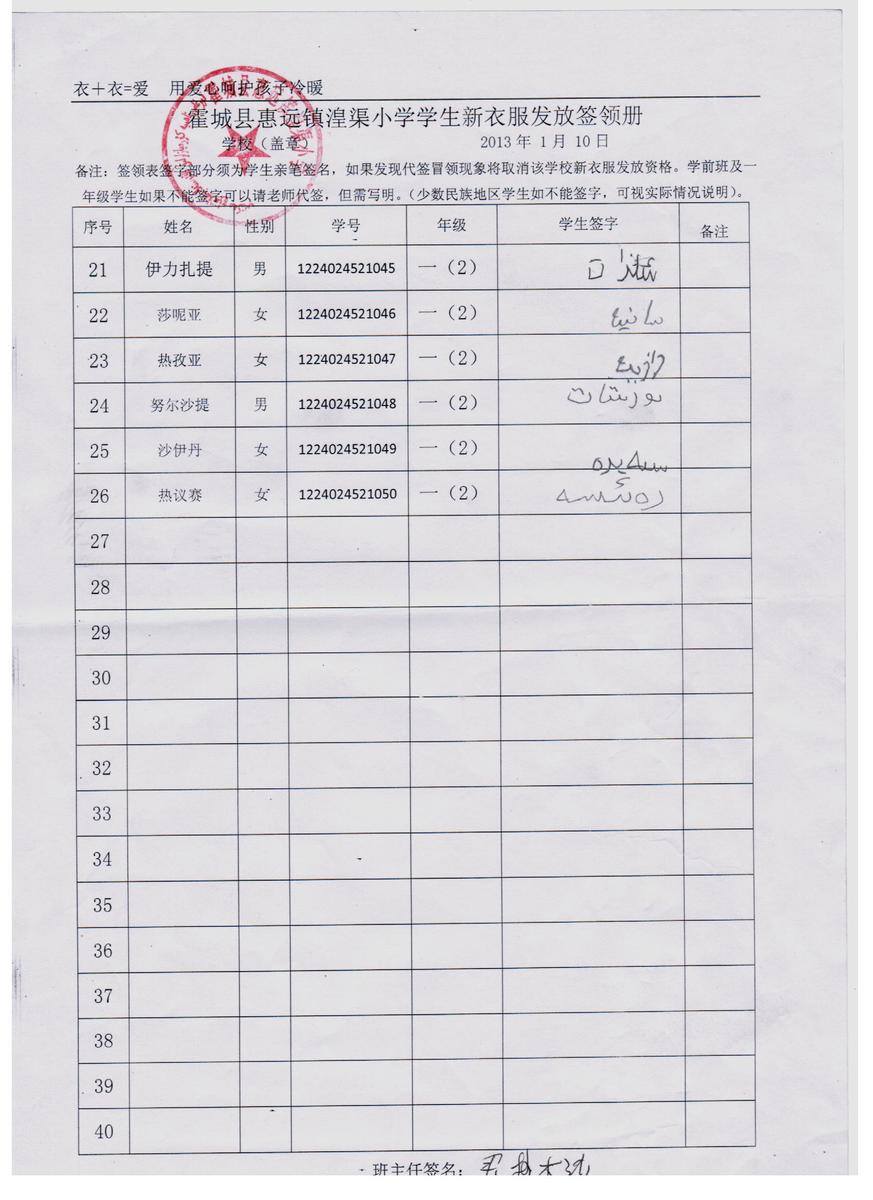 衣＋衣=爱 用爱心呵护孩子冷暖
霍城县惠远镇湟渠小学学生新衣服发放签领册
学校（盖章） 2013 年 1 月 10 日
备注：签领表签字部分须为学生亲笔签名，如果发现代签冒领现象将取消该学校新衣服发放资格。学前班及一
年级学生如果不能签字可以请老师代签，但需写明。（少数民族地区学生如不能签字，可视实际情况说明）。
序号 姓名 性别 学号 年级 学生签字 备注
21 伊力扎提 男 1224024521045 一（2）
22 莎呢亚 女 1224024521046 一（2） سانيە
23 热孜亚 女 1224024521047 一（2） رازىيە
24 努尔沙提 男 1224024521048 一（2）
25 沙伊丹 女 1224024521049 一（2）
26 热议赛 女 1224024521050 一（2）
27
28
29
30
31
32
33
34
35
36
37
38
39
40
班主任签名：